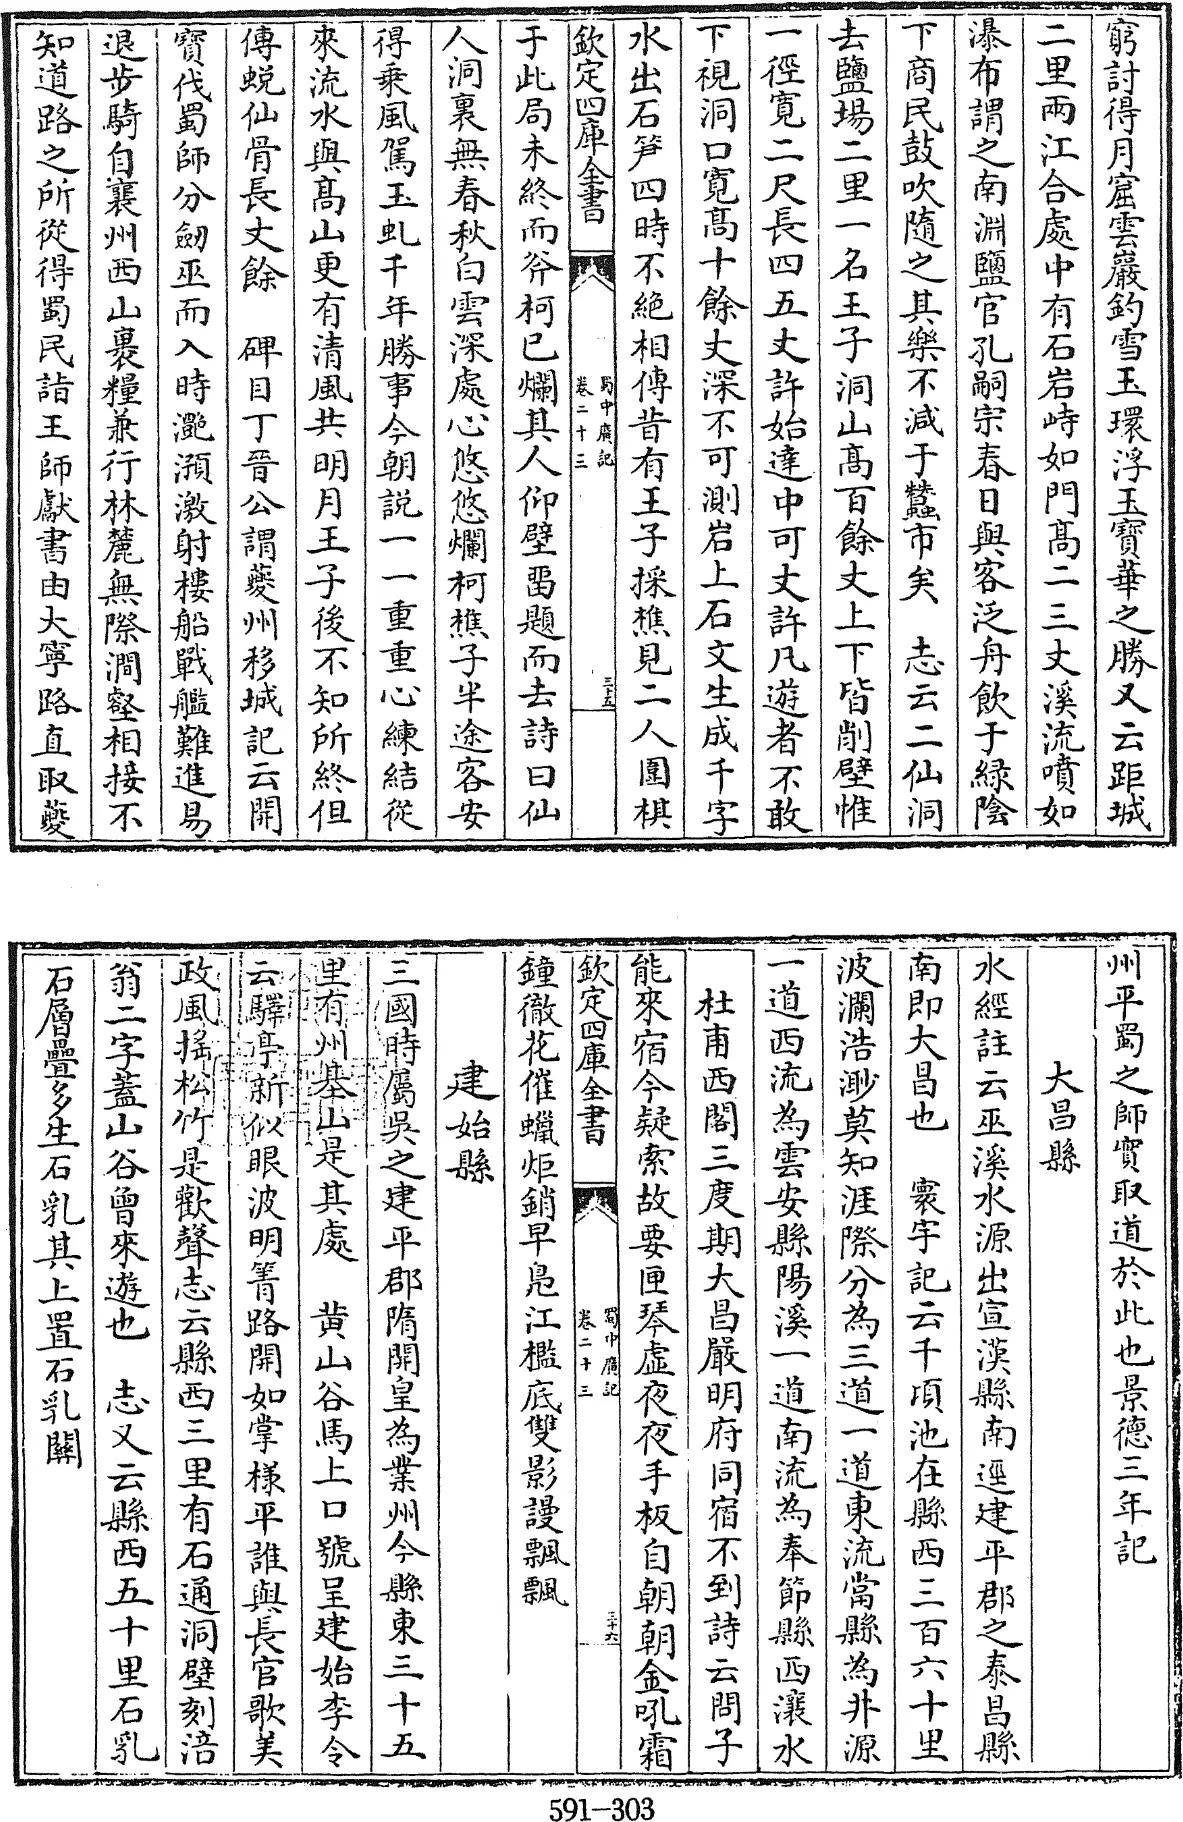 窮討得月窟雲巖釣雪玉環浮玉寳華之勝又云距城
二里兩江合處中有石岩峙如門髙二三丈溪流噴如
瀑布謂之南淵鹽官孔嗣宗春日與客泛舟飲于緑陰
下商民鼓吹隨之其樂不減于蠶市矣　志云二仙洞
去鹽場二里一名王子洞山髙百餘丈上下皆削壁惟
一徑寛二尺長四五丈許始達中可丈許凡遊者不敢
下視洞口寛髙十餘丈深不可測岩上石文生成千字
水出石笋四時不絶相傳昔有王子採樵見二人圍棋
欽定四庫全書
蜀中廣記
卷二十三
三五
于此局未終而斧柯已爛其人仰壁畱題而去詩曰仙
人洞裏無春秋白雲深處心悠悠爛柯樵子半途客安
得乗風駕玉虬千年勝事今朝説一一重重心練結從
來流水與髙山更有清風共明月王子後不知所終但
傳蜕仙骨長丈餘　碑目丁晉公謂夔州移城記云開
寳伐蜀師分劒巫而入時灧澦激射樓船戰艦難進易
退步騎自襄州西山裹糧兼行林麓無際澗壑相接不
知道路之所從得蜀民詣王師獻書由大寧路直取夔
州平蜀之師實取道於此也景德三年記
大昌縣
水經註云巫溪水源出宣漢縣南逕建平郡之泰昌縣
南即大昌也　寰宇記云千頃池在縣西三百六十里
波瀾浩渺莫知涯際分為三道一道東流當縣為井源
一道西流為雲安縣陽溪一道南流為奉節縣西瀼水
杜甫西閣三度期大昌嚴明府同宿不到詩云問子
能來宿今疑索故要匣琴虚夜夜手板自朝朝金吼霜
欽定四庫全書
蜀中廣記
卷二十三
三十六
鐘徹花催蠟炬銷早鳬江檻底雙影謾飄飄
建始縣
三國時屬吳之建平郡隋開皇為業州今縣東三十五
里有州基山是其處　黄山谷馬上口號呈建始李令
云驛亭新似眼波明箐路開如掌様平誰與長官歌美
政風揺松竹是歡聲志云縣西三里有石通洞壁刻涪
翁二字蓋山谷曾來遊也　志又云縣西五十里石乳
石層疊多生石乳其上置石乳關
591-303